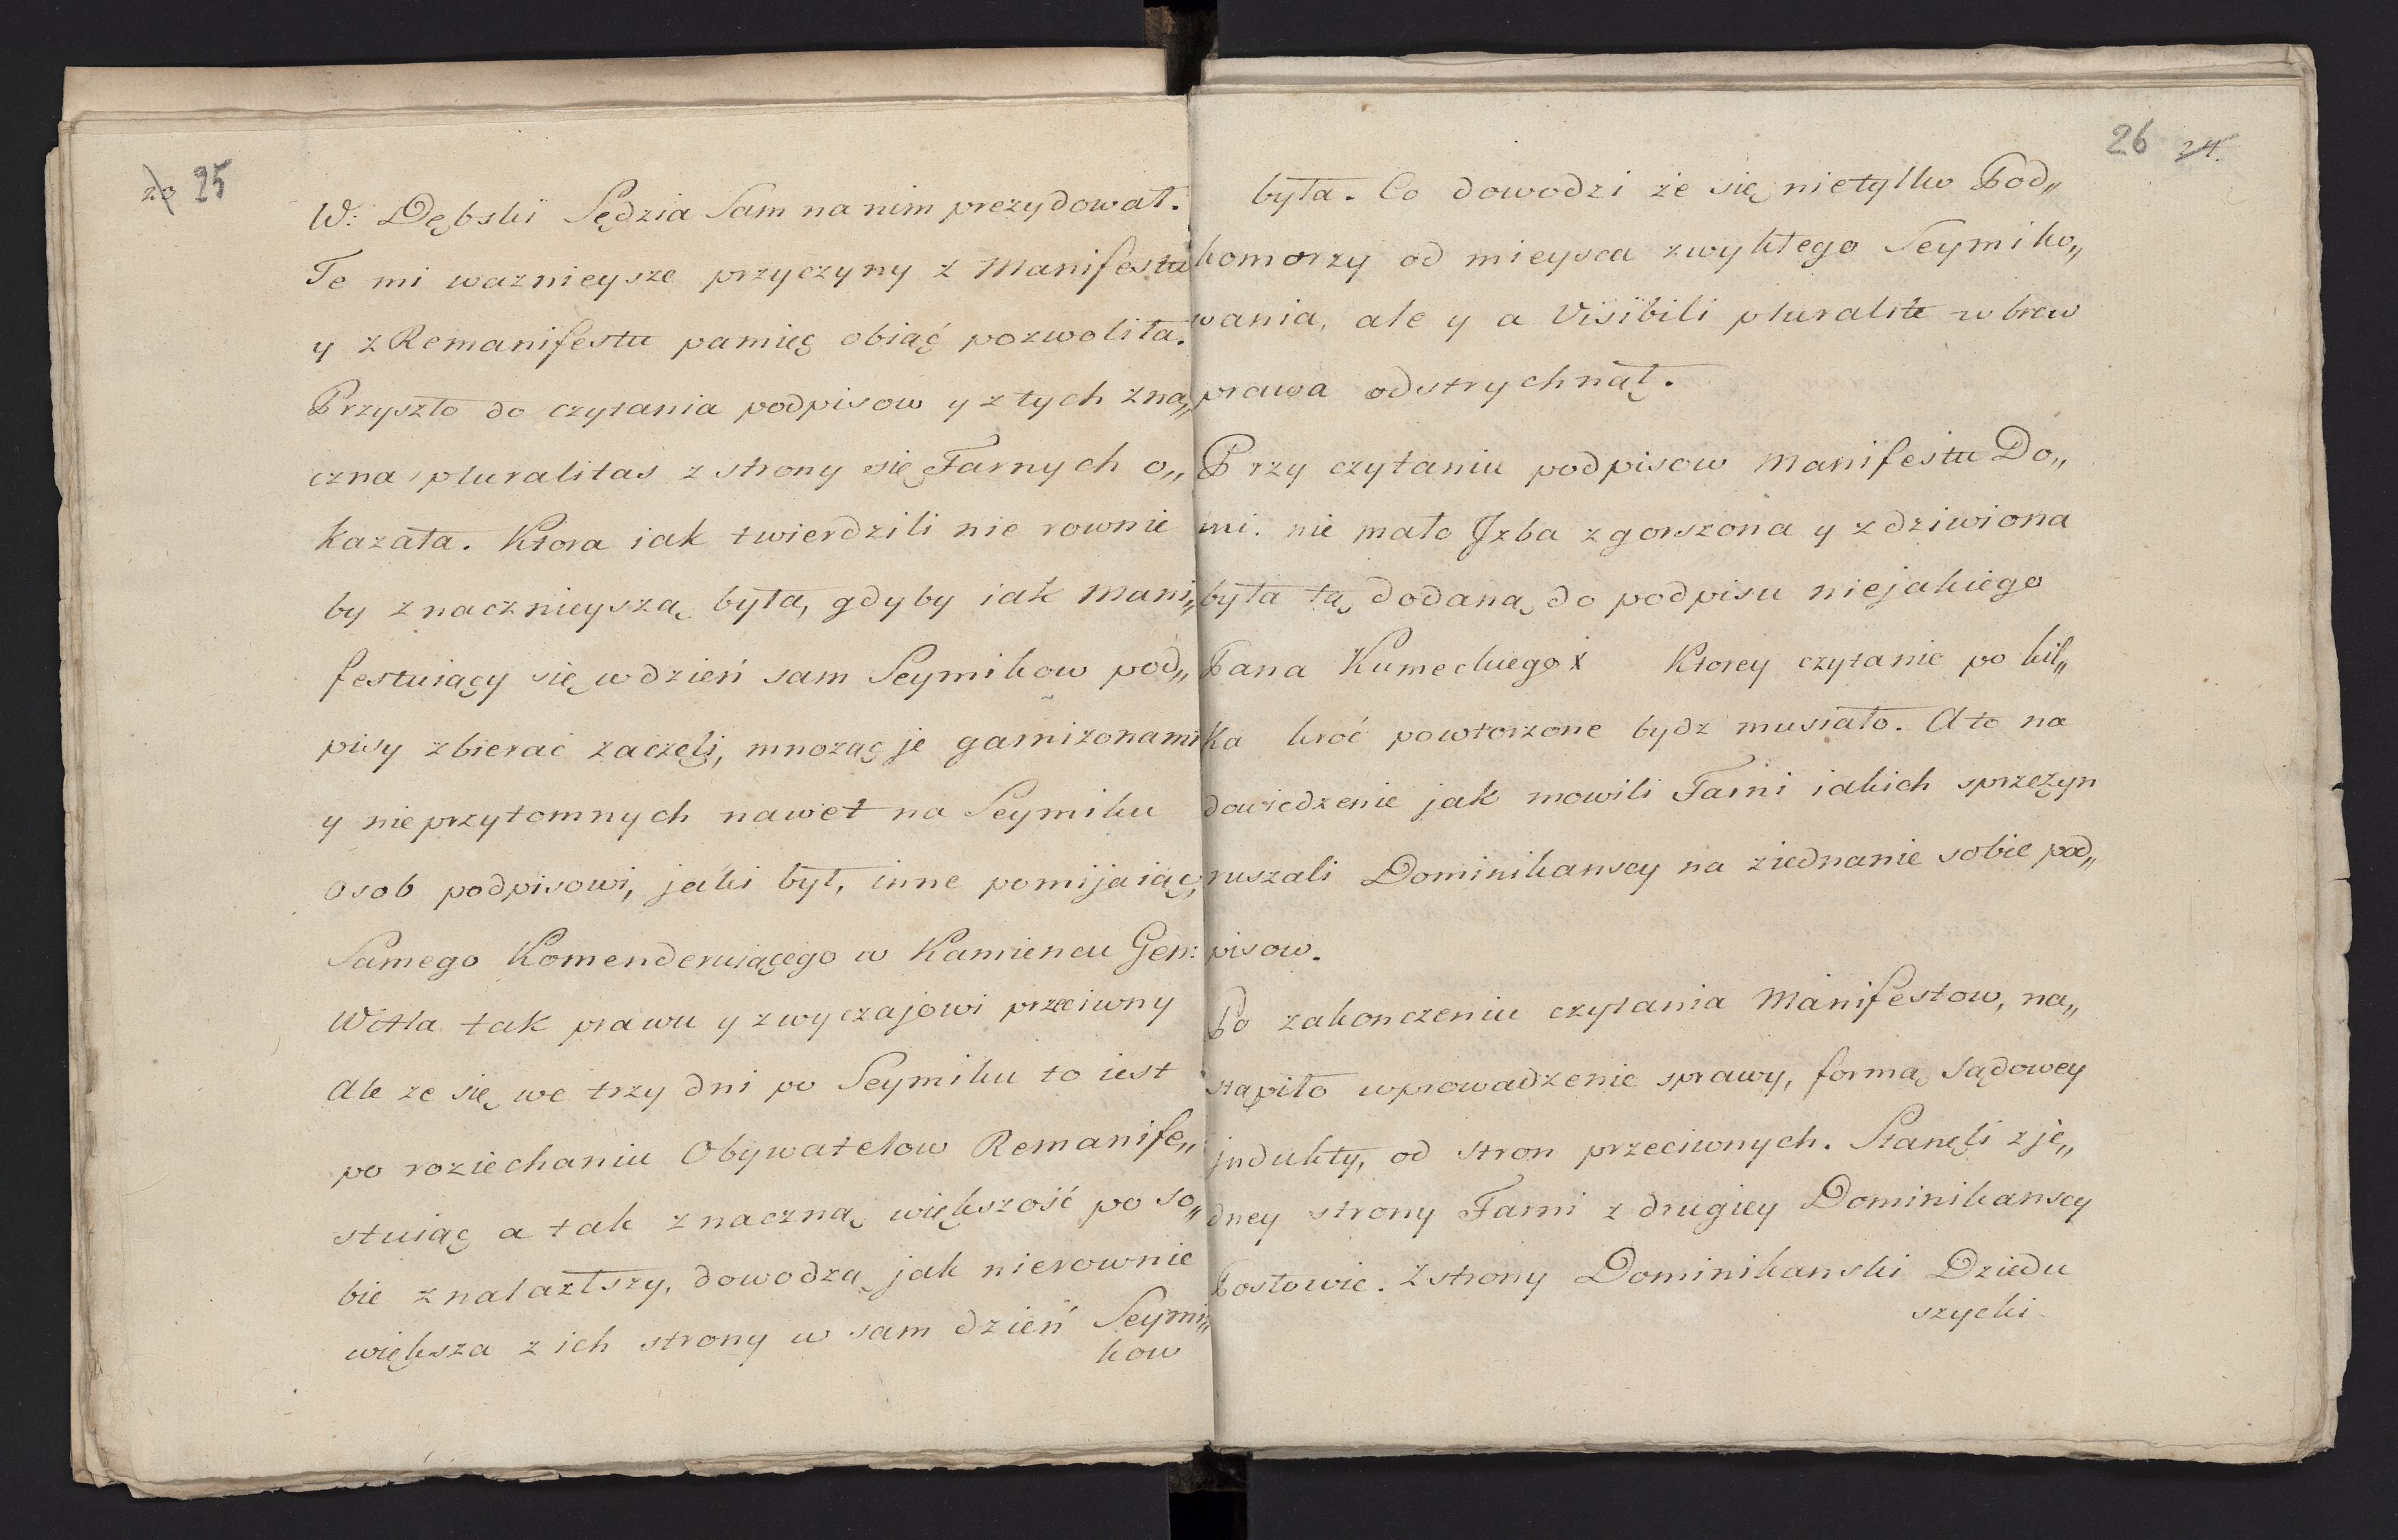 23 25
W: Dębski Sędzia Sam na nim prezydował.
Te mi waznieysze przyczyny z Manifestu
y z Remanifestu pamięc obiąć pozwoliła.
Przyszło do czytania podpisow y z tych zna„
czna pluralitas z strony się Farnych o„
kazała. Ktora iak twierdzili nie rownie
by znacznieyszą była, gdyby iak Mani„
festuiący się w dzień sam Seymikow pod„
pisy zbierać zaczęli, mnoząc je garnizonami
y nieprzytomnych nawet na Seymiku
osob podpisowi, jaki był, inne pomijaiąc,
Samego Komenderuiącego w Kamiencu Gen:
Witta tak prawu y zwyczajowi przeciwny
Ale ze się we trzy dni po Seymiku to iest
po roziechaniu Obywatelow Remanife„
stuiąc a tak znaczną większość po so„
bie znalazłszy, dowodzą jak nierownie
większa z ich strony w sam dzień Seymi„
kow
26 24.
była. Co dowodzi że się nietylko Pod„
komorzy od mieysca zwykłego Seymiko„
wania, ale y a Visibili pluralite wbrew
prawa odstrychnął.
Przy czytaniu podpisow Manifestu Do„
mi. nie mało Jzba zgorszona y zdziwiona
była tą dodaną do podpisu niejakiego
Pana Kumeckiego x Ktorey czytanie po kil„
ka kroć powtorzone bydz musiało. A to na
dowiedzenie jak mowili Farni iakich sprzezyn
ruszali Dominikanscy na ziednanie sobie pod„
pisow.
Po zakonczeniu czytania Manifestow, na„
stąpiło wprowadzenie sprawy, formą sądowey
jndukty, od stron przeciwnych. Stanęli z je„
dney strony Farni z drugiey Dominikanscy
Posłowie. Z strony Dominikanski Dziedu
szycki